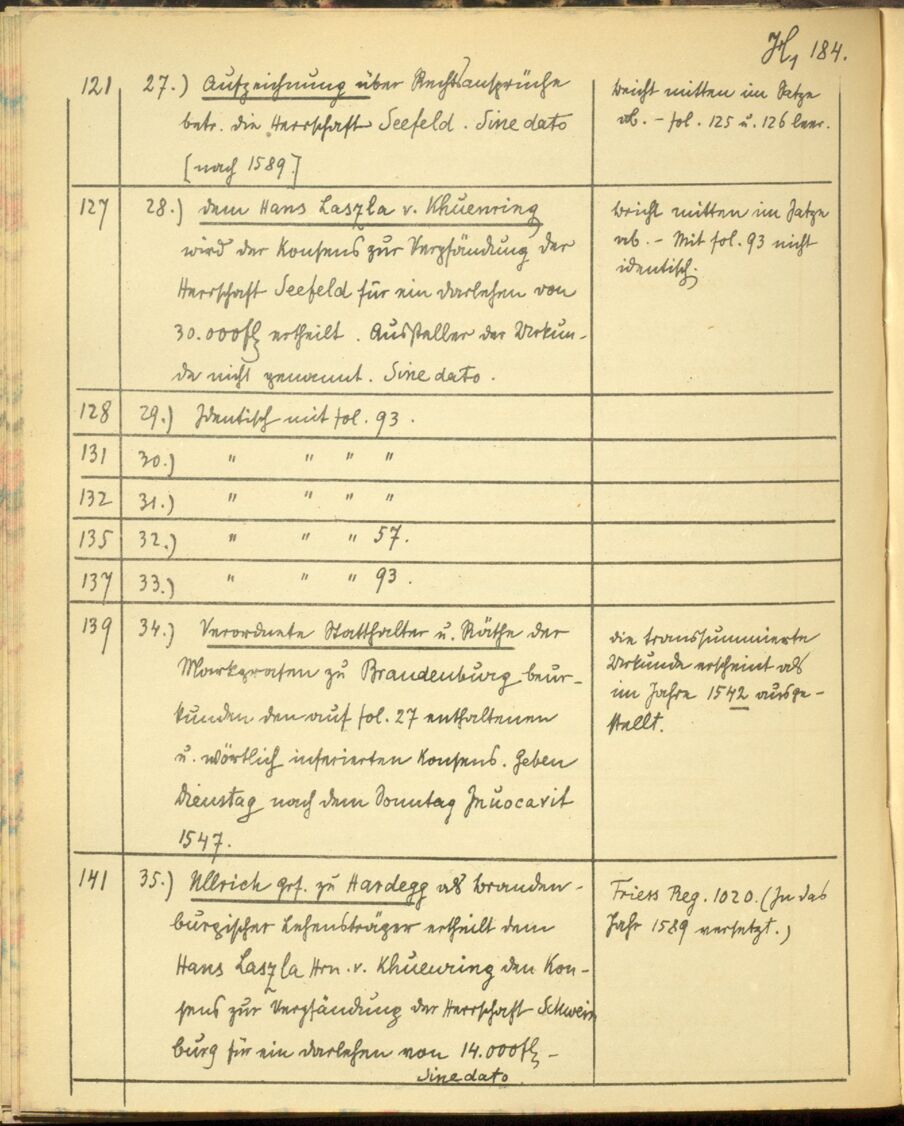 H, 184.
121 27.) Aufzeichnung über Rechtsansprüche
betr. die Herrschaft Seefeld. Sine dato
[nach 1589]
bricht mitten im Satze
ab. – fol. 125 u. 126 leer.
127 28.) Dem Hans Laszla v. Khuenring
wird der Konsens zur Verpfändung der
Herrschaft Seefeld für ein Darlehen von
30.000 fl ertheilt. Aussteller der Urkun-
de nicht genannt. Sine dato.
bricht mitten im Satze
ab. – Mit fol. 93 nicht
identisch.
128 29.) Identisch mit fol. 93.
131 30.) " " " "
132 31.) " " " "
135 32.) " " " 57.
137 33.) " " " 93.
139 34.) Verordnete Statthalter u. Räthe der
Markgrafen zu Brandenburg beur-
kunden den auf fol. 27 enthaltenen
u. wörtlich inserierten Konsens. Geben
Dienstag nach dem Sonntag Invocavit
1547.
die transsummierte
Urkunde erscheint als
im Jahre 1542 ausge-
stellt.
141 35.) Ullrich Grf. zu Hardegg als branden-
burgischer Lehensträger ertheilt dem
Hans Laszla Hrn. v. Khuenring den Kon-
sens zur Verpfändung der Herrschaft Schwein
burg für ein Darlehen von 14.000 fl –
Sine dato
Friess Reg. 1020. (In das
Jahr 1589 versetzt.)